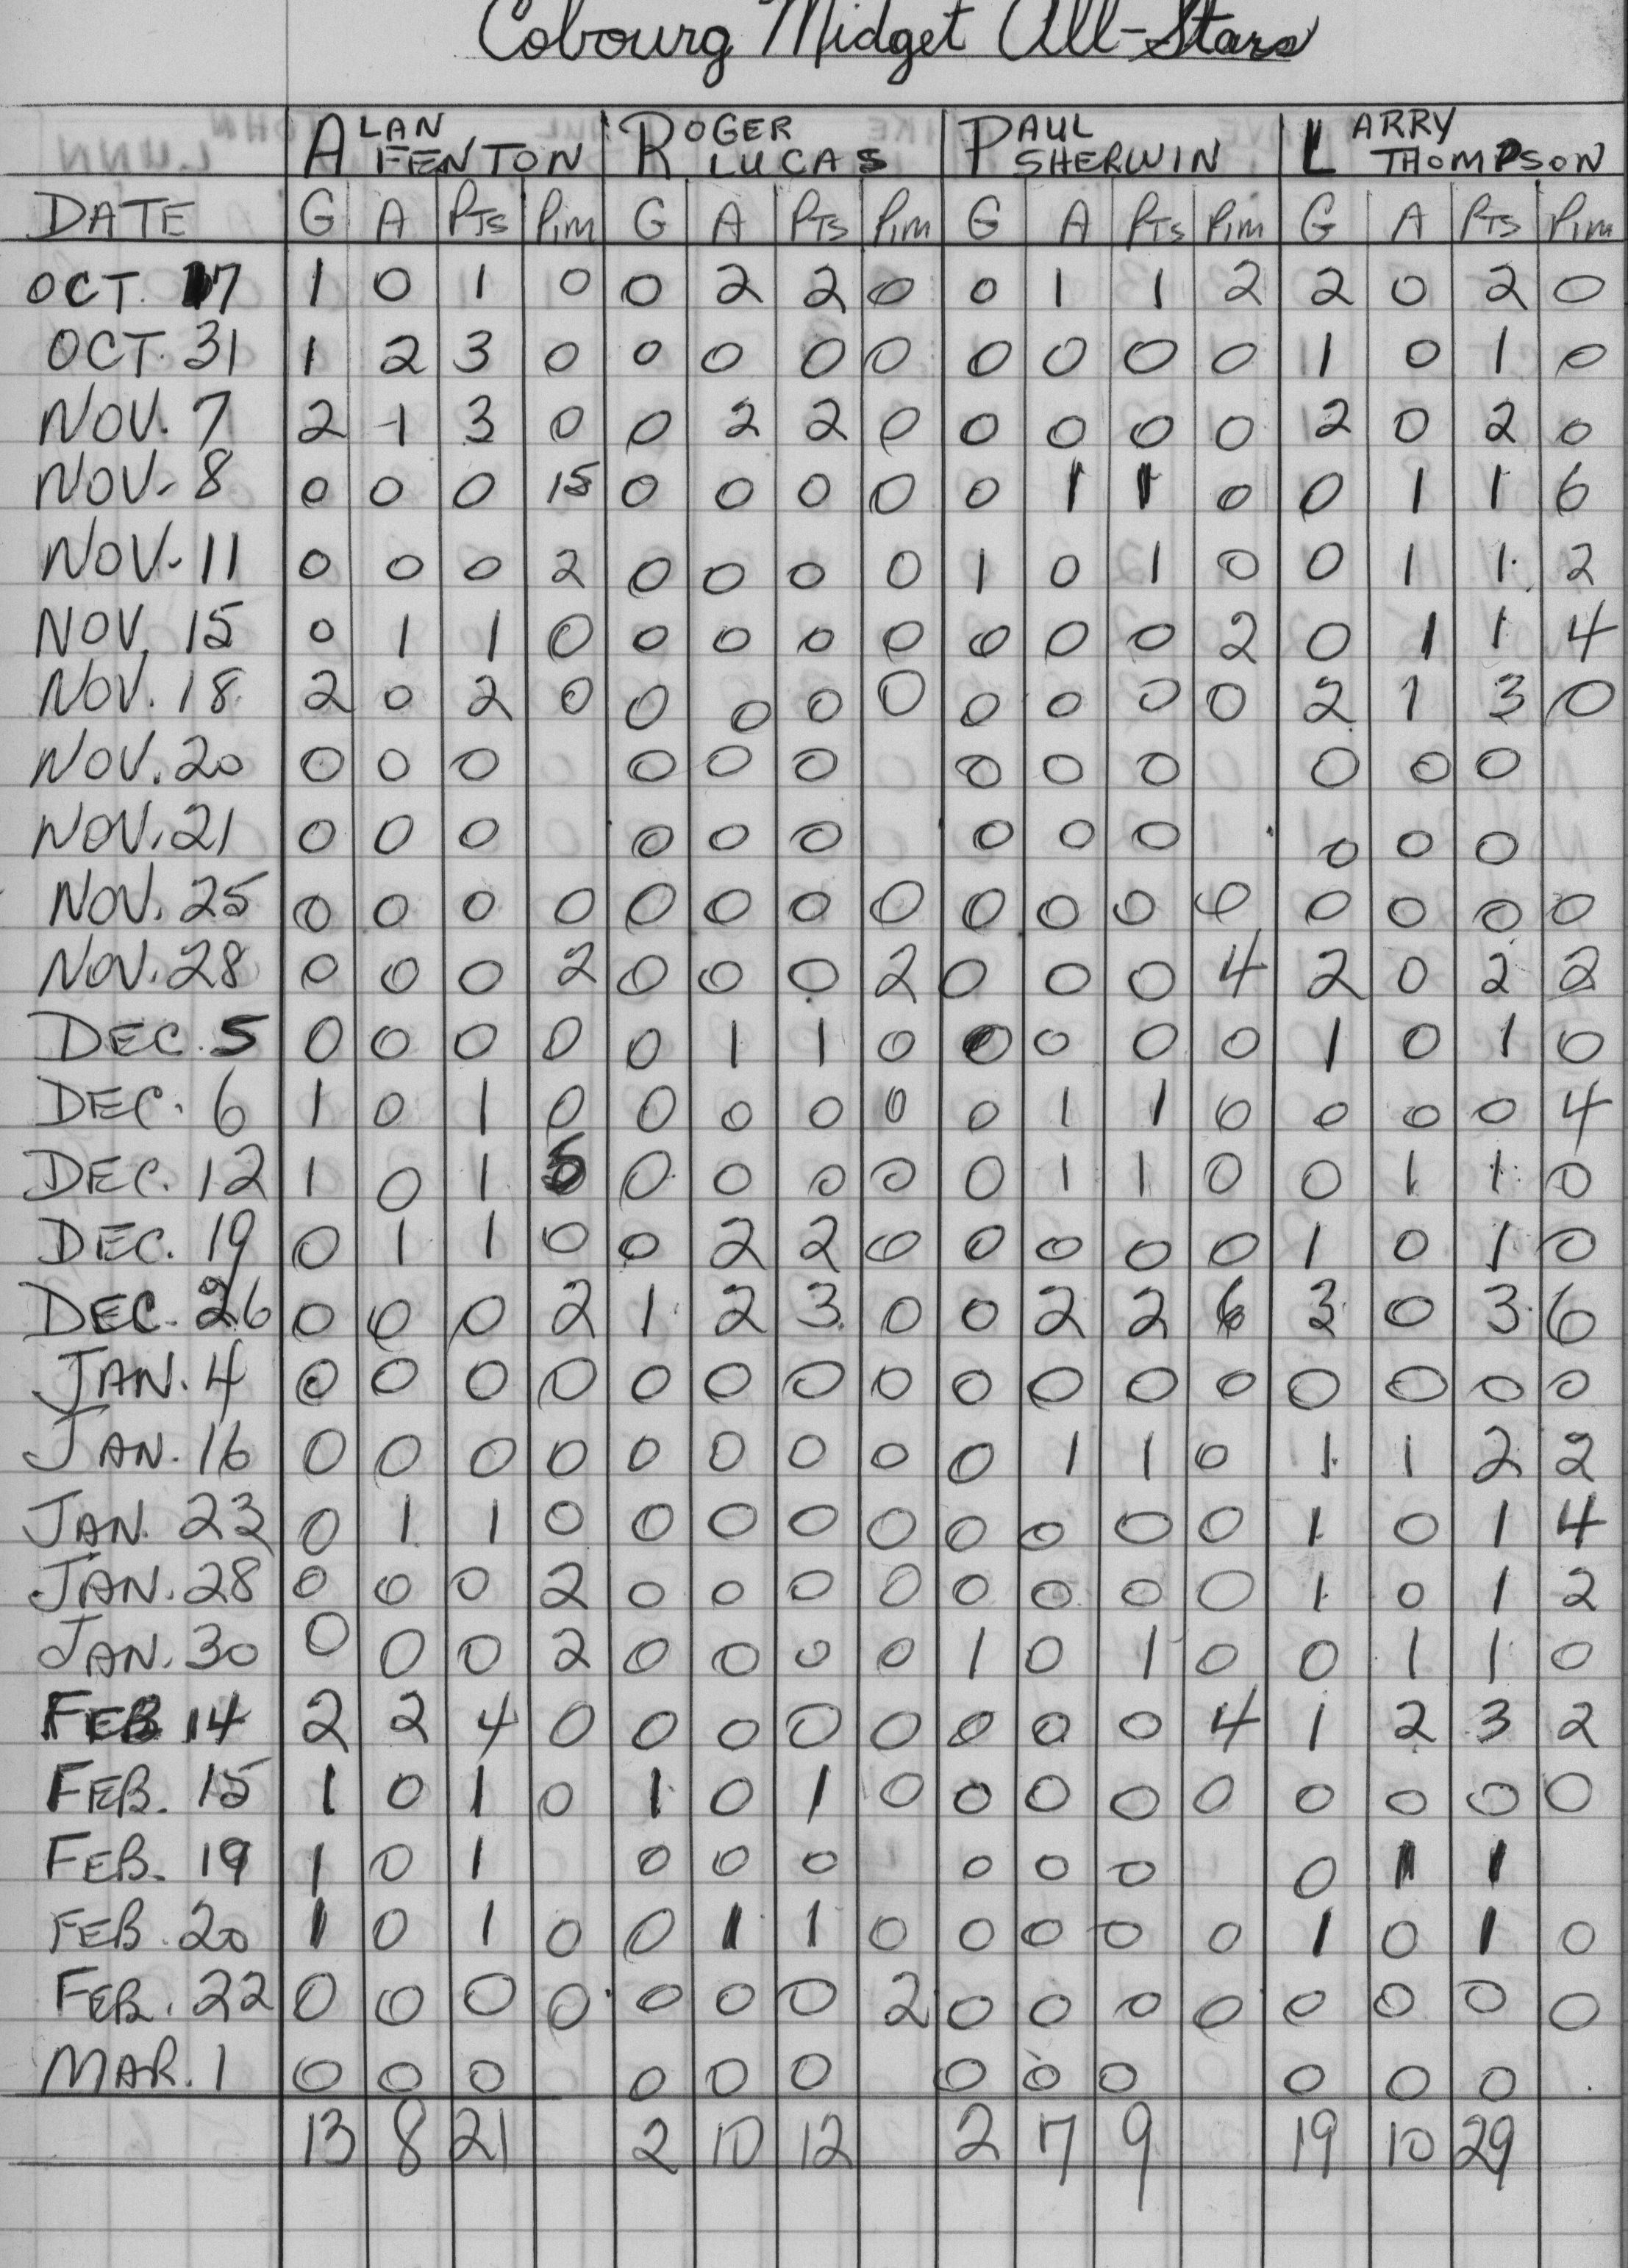 Cobourg Midget All-Stars
ALAN FENTON ROGER LUCAS PAUL SHERWIN LARRY THOMPSON
DATE G A PTS Pim G A PTS Pim G A PTS Pim G A PTS Pim
OCT. 17 1 0 1 0 0 2 2 0 0 1 1 2 2 0 2 0
OCT. 31 1 2 3 0 0 0 0 0 0 0 0 0 1 0 1 0
NOV. 7 2 1 3 0 0 2 2 0 0 0 0 0 2 0 2 0
NOV. 8 0 0 0 15 0 0 0 0 0 1 1 0 0 1 1 6
NOV. 11 0 0 0 2 0 0 0 0 1 0 1 0 0 1 1 2
NOV. 15 0 1 1 0 0 0 0 0 0 0 0 2 0 1 1 4
NOV. 18 2 0 2 0 0 0 0 0 0 0 0 0 2 1 3 0
NOV. 20 0 0 0 0 0 0 0 0 0 0 0 0
NOV. 21 0 0 0 0 0 0 0 0 0 0 0 0
NOV. 25 0 0 0 0 0 0 0 0 0 0 0 0 0 0 0 0
NOV. 28 0 0 0 2 0 0 0 2 0 0 0 4 2 0 2 2
DEC. 5 0 0 0 0 0 1 1 0 0 0 0 0 1 0 1 0
DEC. 6 1 0 1 0 0 0 0 0 0 1 1 0 0 0 0 4
DEC. 12 1 0 1 0 0 0 0 0 1 1 0 0 1 1 0
DEC. 19 0 1 1 0 0 2 2 0 0 0 0 0 1 0 1 0
DEC. 26 0 0 0 2 1 2 3 0 0 2 2 6 3 0 3 6
JAN. 4 0 0 0 0 0 0 0 0 0 0 0 0 0 0 0 0
JAN. 16 0 0 0 0 0 0 0 0 0 1 1 0 1 1 2 2
JAN. 23 0 1 1 0 0 0 0 0 0 0 0 0 1 0 1 4
JAN. 28 0 0 0 2 0 0 0 0 0 0 0 0 1 0 1 2
JAN. 30 0 0 0 2 0 0 0 0 1 0 1 0 0 1 1 0
FEB 14 2 2 4 0 0 0 0 0 0 0 0 4 1 2 3 2
FEB. 15 1 0 1 0 1 0 1 0 0 0 0 0 0 0 0 0
FEB. 19 1 0 1 0 0 0 0 0 0 0 1 1
FEB. 20 1 0 1 0 0 1 1 0 0 0 0 0 1 0 1 0
FEB. 22 0 0 0 0 0 0 0 2 0 0 0 0 0 0 0 0
MAR. 1 0 0 0 0 0 0 0 0 0 0 0 0
13 8 21 2 10 12 2 7 9 19 10 29